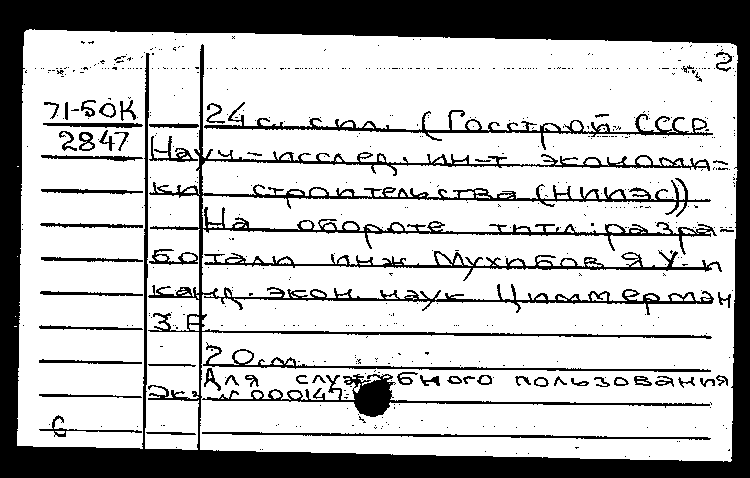 2
71-50К
2847
24 с. с ил. (Госстрой СССР
Науч.-исслед. ин-т экономи-
ки строительства (НИИЭС)).
На обороте тит.л.: разра-
ботали инж. Мухибов Я.У. и
канд. экон. наук Циммерман
З.Е
20 см.
Для служебного пользования
Экз. № 000147
С